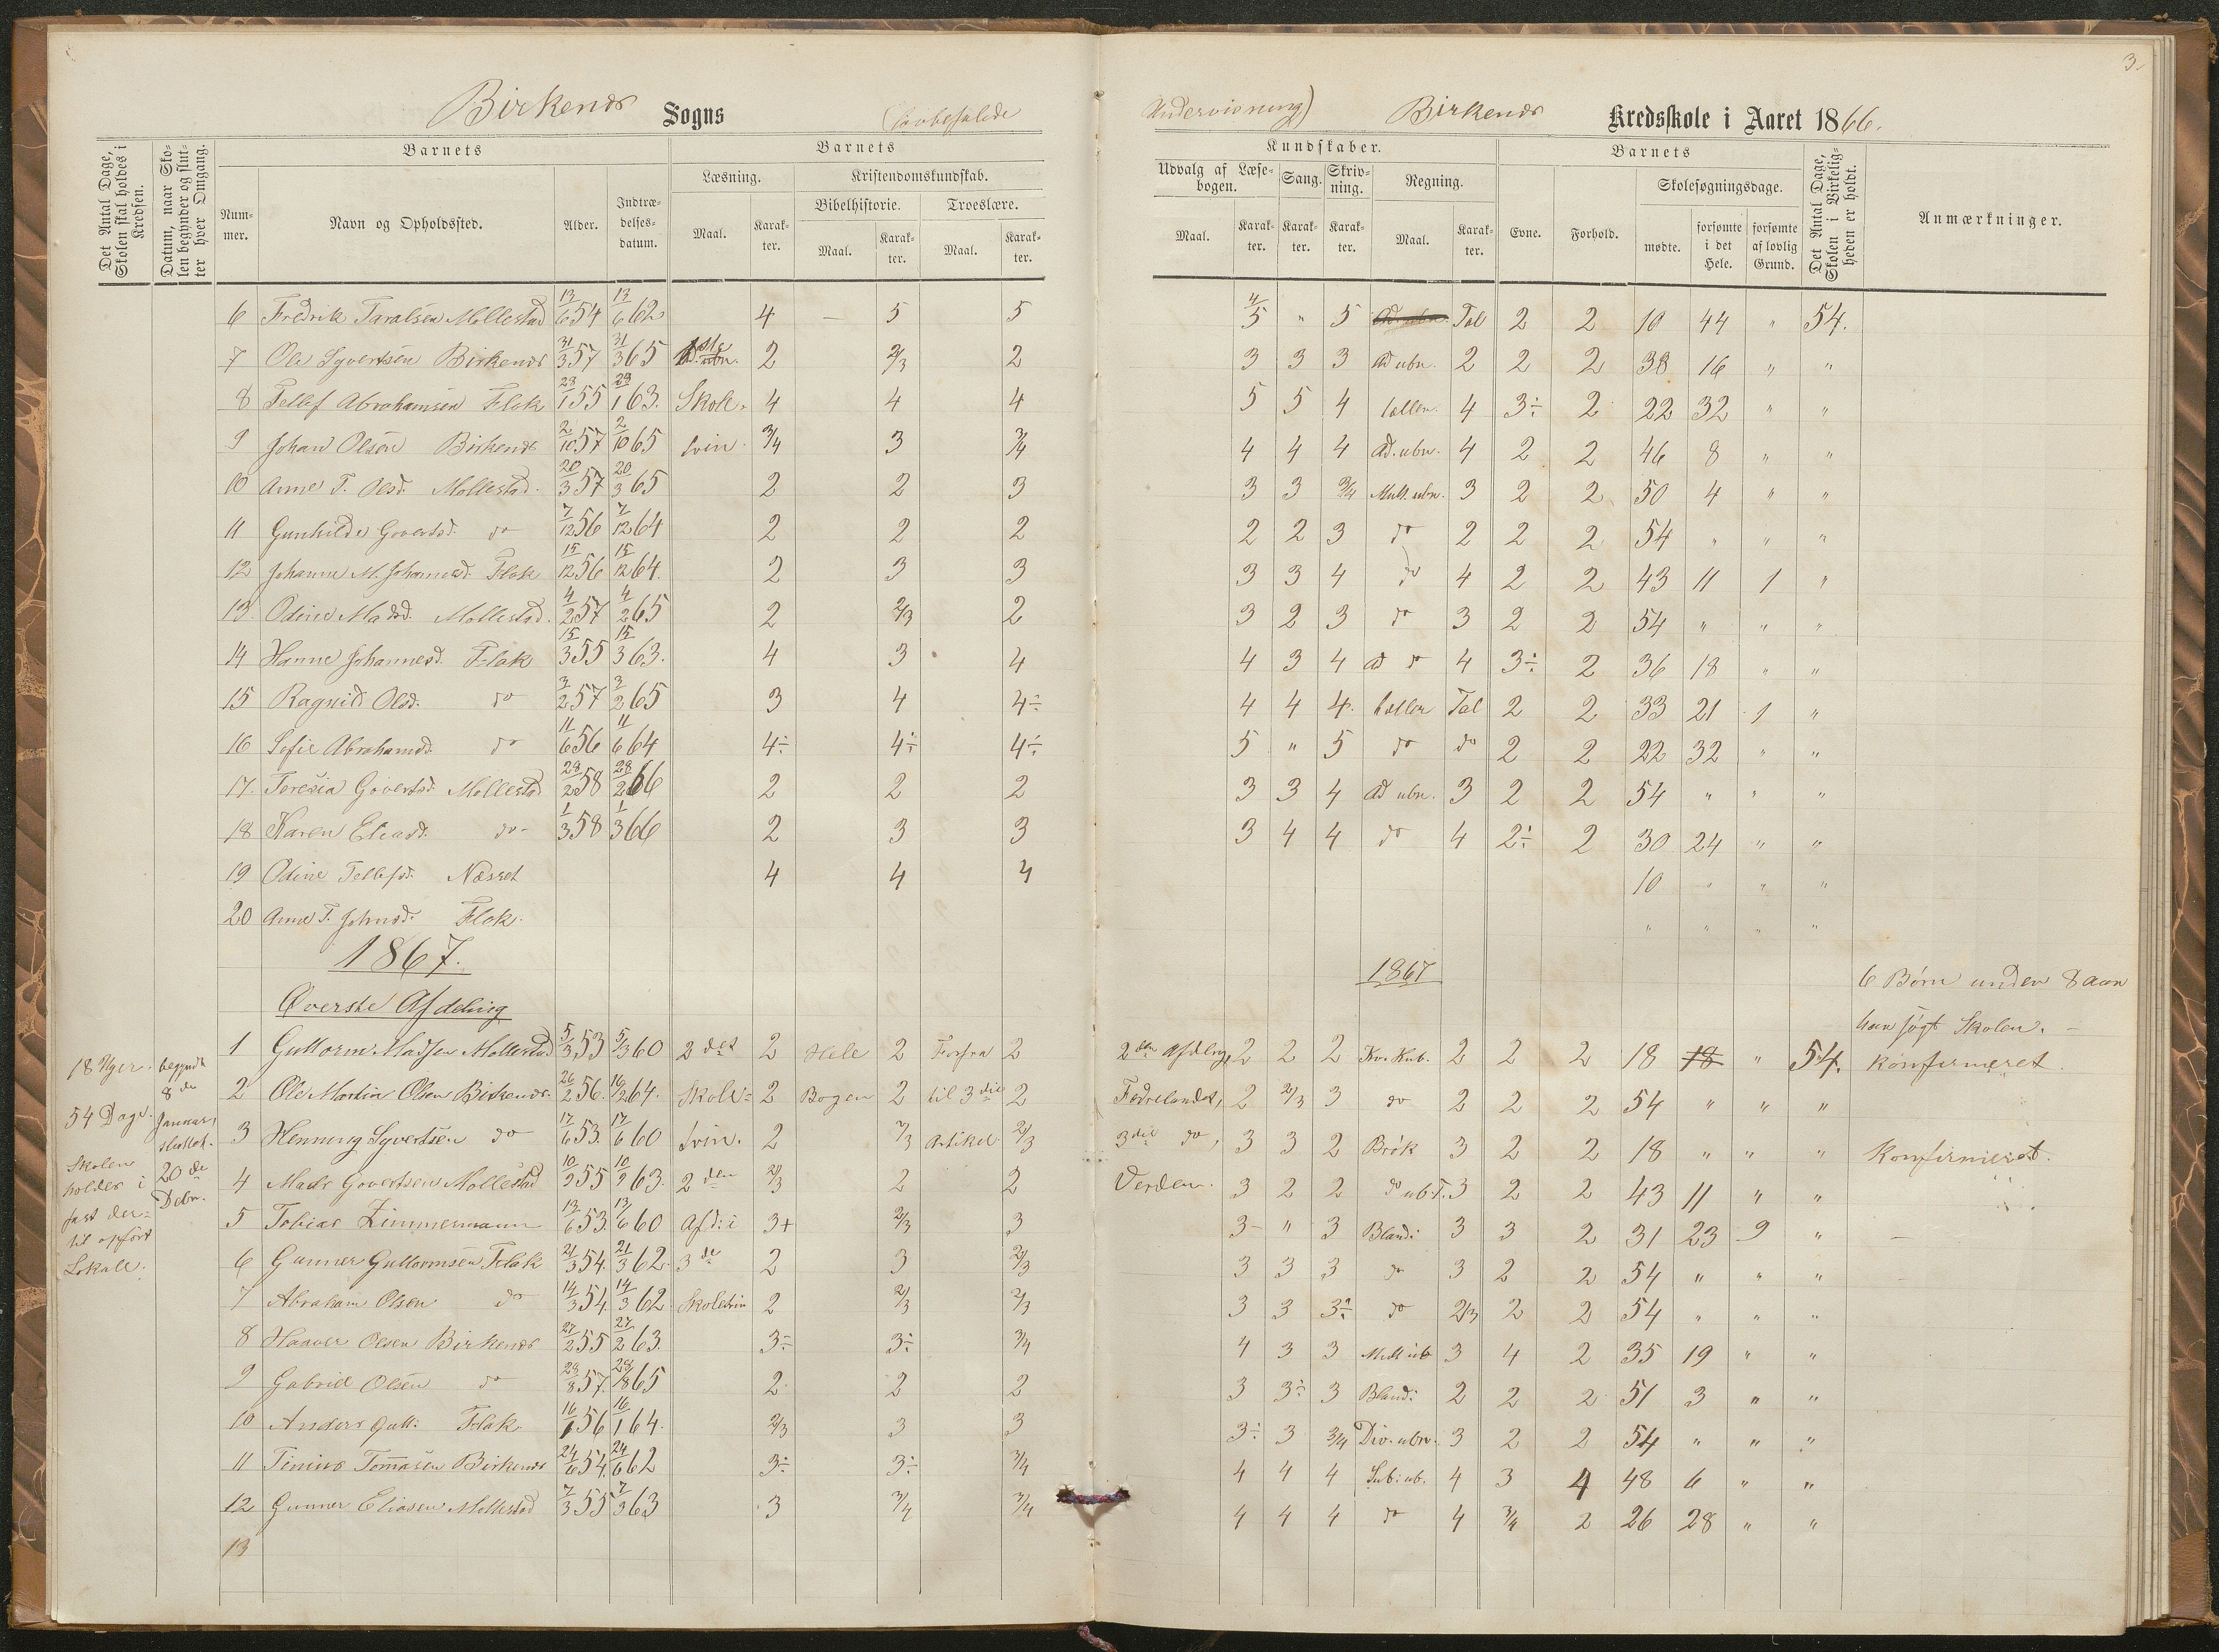 3.
Birkenæs Sogns (lovbefalede Undervisning) Birkenæs Kredsskole i Aaret 1866.
Det Antal Dage, Skolen skal holdes i Kredsen.
Datum, naar Skolen begynder og slutter hver Omgang.
Barnets
Nummer.
Navn og Opholdssted.
Alder.
Indtrædelsesdatum.
Barnets
Læsning.
Maal. Karakter.
Kristendomskundskab.
Bibelhistorie.
Maal. Karakter.
Troeslære.
Maal. Karakter.
Kundskaber.
Udvalg af Læsebogen.
Maal. Karakter.
Sang. Karakter.
Skrivning. Karakter.
Regning.
Maal. Karakter.
Barnets
Evne. Forhold.
Skolesøgningsdage.
mødte. forsømte i det Hele. forsømte af lovlig Grund.
Det Antal Dage, Skolen i Virkeligheden er holdt.
Anmærkninger.
6 Fredrik Taralsen Mollestad 13/6 54 13/6 62 4 – 5 5 4/5 " 5 Tal 2 2 10 44 " 54.
7 Ole Syvertsen Birkenæs 31/3 57 31/3 65 2 2/3 2 3 3 3 Ad ubn. 2 2 2 38 16 " "
8 Tellef Abrahamsen Flak 23/1 55 63. Skole- 4 4 4 5 5 4 4 3÷ 2 22 32 " "
9 Johan Olsen Birkenæs 2/10 57 2/10 65 trin. 3/4 3 3/4 4 4 4 Ad. ubn. 4 2 2 46 8 " "
10 Anne T. Olsd. Mollestad. 20/3 57 20/3 65 2 2 3 3 3 3/4 Mult. ubn. 3 2 2 50 4 " "
11 Gunhilde Govertsd. do 7/12 56 7/12 64 2 2 2 2 2 3 do 2 2 2 54 " " "
12 Johanne M. Johannesd. Flak 15/12 56 15/12 64. 2 3 3 3 3 4 do 4 2 2 43 11 1 "
13. Odine Madsd. Mollestad. 4/2 57 4/2 65 2 2/3 2 3 2 3 do 3 2 2 54 " " "
14 Hanne Johannesd. Flak 15/3 55 15/3 63. 4 3 4 4 3 4 Ad do 4 3÷ 2 36 18 " "
15 Ragnild Olsd. do 3/2 57 3/2 65 3 4 4÷ 4 4 4. Tal 2 2 33 21 1 "
16 Sofie Abrahamsd. do 11/6 56 11/6 64 4÷ 4÷ 4÷ 5 " 5 do do 2 2 22 32 " "
17. Teresia Govertsd. Mollestad 28/2 58 28/2 66 2 2 2 3 3 4 Ad ubn. 3 2 2 54 " " "
18 Karen Eliasd. do 1/3 58 1/3 66 2 3 3 3 4 4 do 4 2÷ 2 30 24 " "
19 Odine Tellefsd. Næsset 4 4 4 10 " " "
20 Anne T. Johnsd. Flak. " " " "
1867. 1867 6 Børn under 8 aar
Øverste Afdeling har søgt Skolen. –
1 Guttorm Madsen Mollestad 5/3 53 5/3 60 2det 2 Hele 2 Forfra 2 2den Afdeling, 2 2 2 2 2 2 18 18 " 54. Konfirmeret.
2 Ole Martin Olsen Birkenæs. 26/2 56. 64. Skole= 2 Bogen 2 til 3die 2 Fedrelandet, 2 2/3 3 do 2 2 2 54 " " "
3 Henning Syvertsen do 17/6 53. 17/6 60 trin. 2 2/3 Artikel. 2/3 3die do, 3 3 2 Brøk 3 2 2 18 " " " Konfirmeret.
4 Mads Govertsen Mollestad 10/2 55 10/2 63. 2den 2/3 2 2 Verden. 3 2 2 do ub.T. 3 2 2 43 11 " "
5 Tobias Zimmermann 13/6 53. 13/6 60 Afd: i 3+ 2/3 3 3- " 3 Bland: 3 3 2 31 23 9 " –
6 Gunner Guttormsen Flak 21/3 54. 21/3 62. 3de 2 3 2/3 3 3 3 do 3 2 2 54 " " "
7 Abraham Olsen do 14/3 54. 14/3 62 Skoletrin 2 2/3 2/3 3 3 3÷ do 2/3 2 2 54 " " "
8 Haaver Olsen Birkenæs 27/2 55 27/2 63. 3÷ 3÷ 3/4 4 3 3 Mult ub 3 4 2 35 19 " "
9 Gabriel Olsen do 28/8 57. 28/8 65 2 2 2 3 3÷ 3 Bland: 2 2 2 51 3 " "
10 Anders Gutt: Flak. 16/1 56 16/1 64. 2/3 3 3 3÷ 3 3/4 Div. ubn. 3 2 2 54 " " "
11 Tinius Tomasen Birkenæs 24/6 54. 24/6 62 3÷ 3÷ 3/4 4 4 4 Sub: ub. 4 3 4 48 6 " "
12 Gunner Eliasen Mollestad 7/3 55 7/3 63 3 3/4 3/4 4 4 4 do 4 3/4 2 26 28 " "
13
18 Uger.
54 Dage.
Skolen
holdes i
fast der=
til opført
Lokale.
begyndt
8de
Januar,
sluttet
20de
Debr.